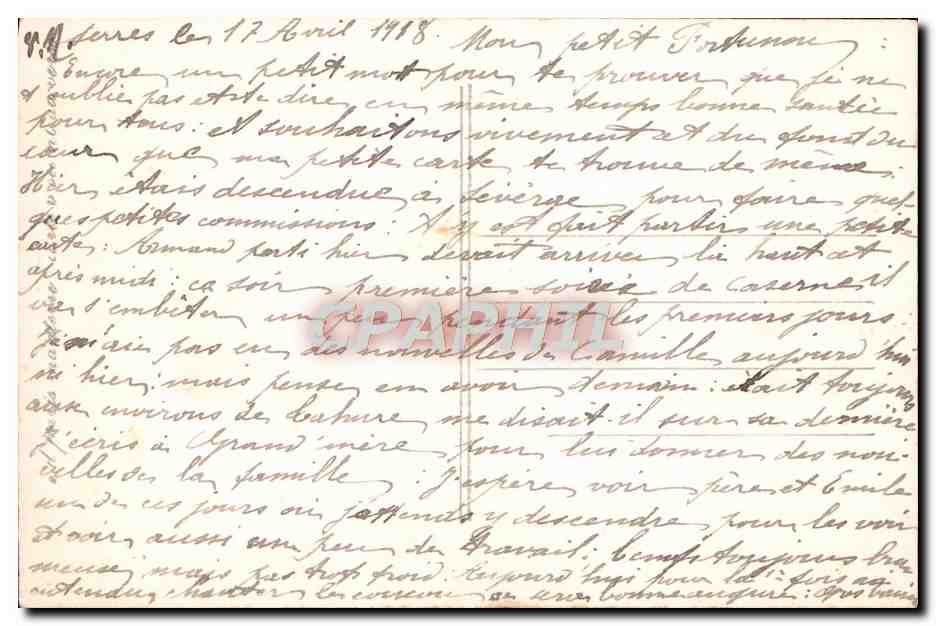 Serres le 17 Avril 1918. Mon petit Fortunou :
Encore un petit mot pour te prouver que je ne
t'oublie pas et te dire en même temps bonne santée
pour tous : et souhaitons vivement et du fond du
cœur que ma petite carte te trouve de même.
Hier étais descendue à pour faire quel-
ques petites commissions : Ai fait partir une petite
carte : Armand parti hier devait arriver là haut cet
après midi : ce soir première soirée de Caserne il
va s'embêter un peu pendant les premiers jours.
Je n'ai pas eu des nouvelles de Camille aujourd'hui
ni hier ; mais pense en avoir demain : était toujours
aux environs de me disait-il sur sa dernière
J'écris à Grand'mère pour lui donner des nou-
velles de la famille. J'espère voir père et Emile
un de ces jours ou j'attends y descendre pour les voir
et voir aussi un peu de travail ; temps toujours bru-
meuse, mais pas trop froid : Aujourd'hui pour la 1ère fois ai
entendu chanter le coucou ce sera bonne augure : Gros baisers
CPAPHIL